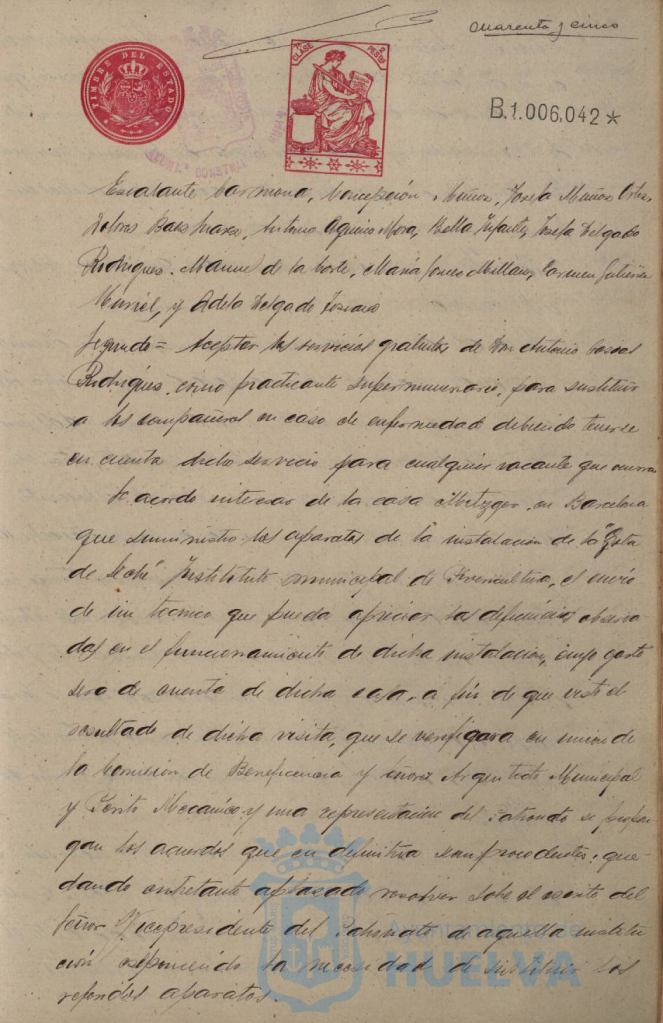 Cuarenta y cinco
TIMBRE DEL ESTADO
CLASE PESETAS
B.1.006,042*
Escalante Carmona, Concepción Muñoz, Josefa Muñoz
Dolores Baez Antonia Aquino Mora, Bella Infante, Josefa Delgado
Rodriguez. Manuel de la Corte, María Gomez Millan, Carmen Gutierrez
Muriel, y Adela Delgado
Segundo = Aceptar los servicios gratuitos de Don Antonio Casas
Rodriguez, como practicante supernumerario, para sustituir
a los compañeros en caso de enfermedad debiendo tenerse
en cuenta dicho servicio para cualquier vacante que ocurra
Se acordo interesar de la casa Metzger, en Barcelona
que suministro los aparatos de la instalacion de la "Gota
de Leche" Instituto municipal de Puericultura, el envio
de un tecnico que pueda apreciar las deficiencias observa-
das en el funcionamiento de dicha instalacion, cuyo gasto
sera de cuenta de dicha casa, a fin de que visto el
resultado de dicha visita, que se verificara en union de
la Comision de Beneficencia y Señores Arquitecto Municipal
y Perito Mecanico y una representacion del Patronato se propon-
gan los acuerdos que en definitiva sean procedentes; que-
dando entretanto aplazado resolver sobre el escrito del
Señor Vicepresidente del Patronato de aquella institu-
ción exponiendo la necesidad de sustituir los
referidos aparatos.
Ayuntamiento de
HUELVA